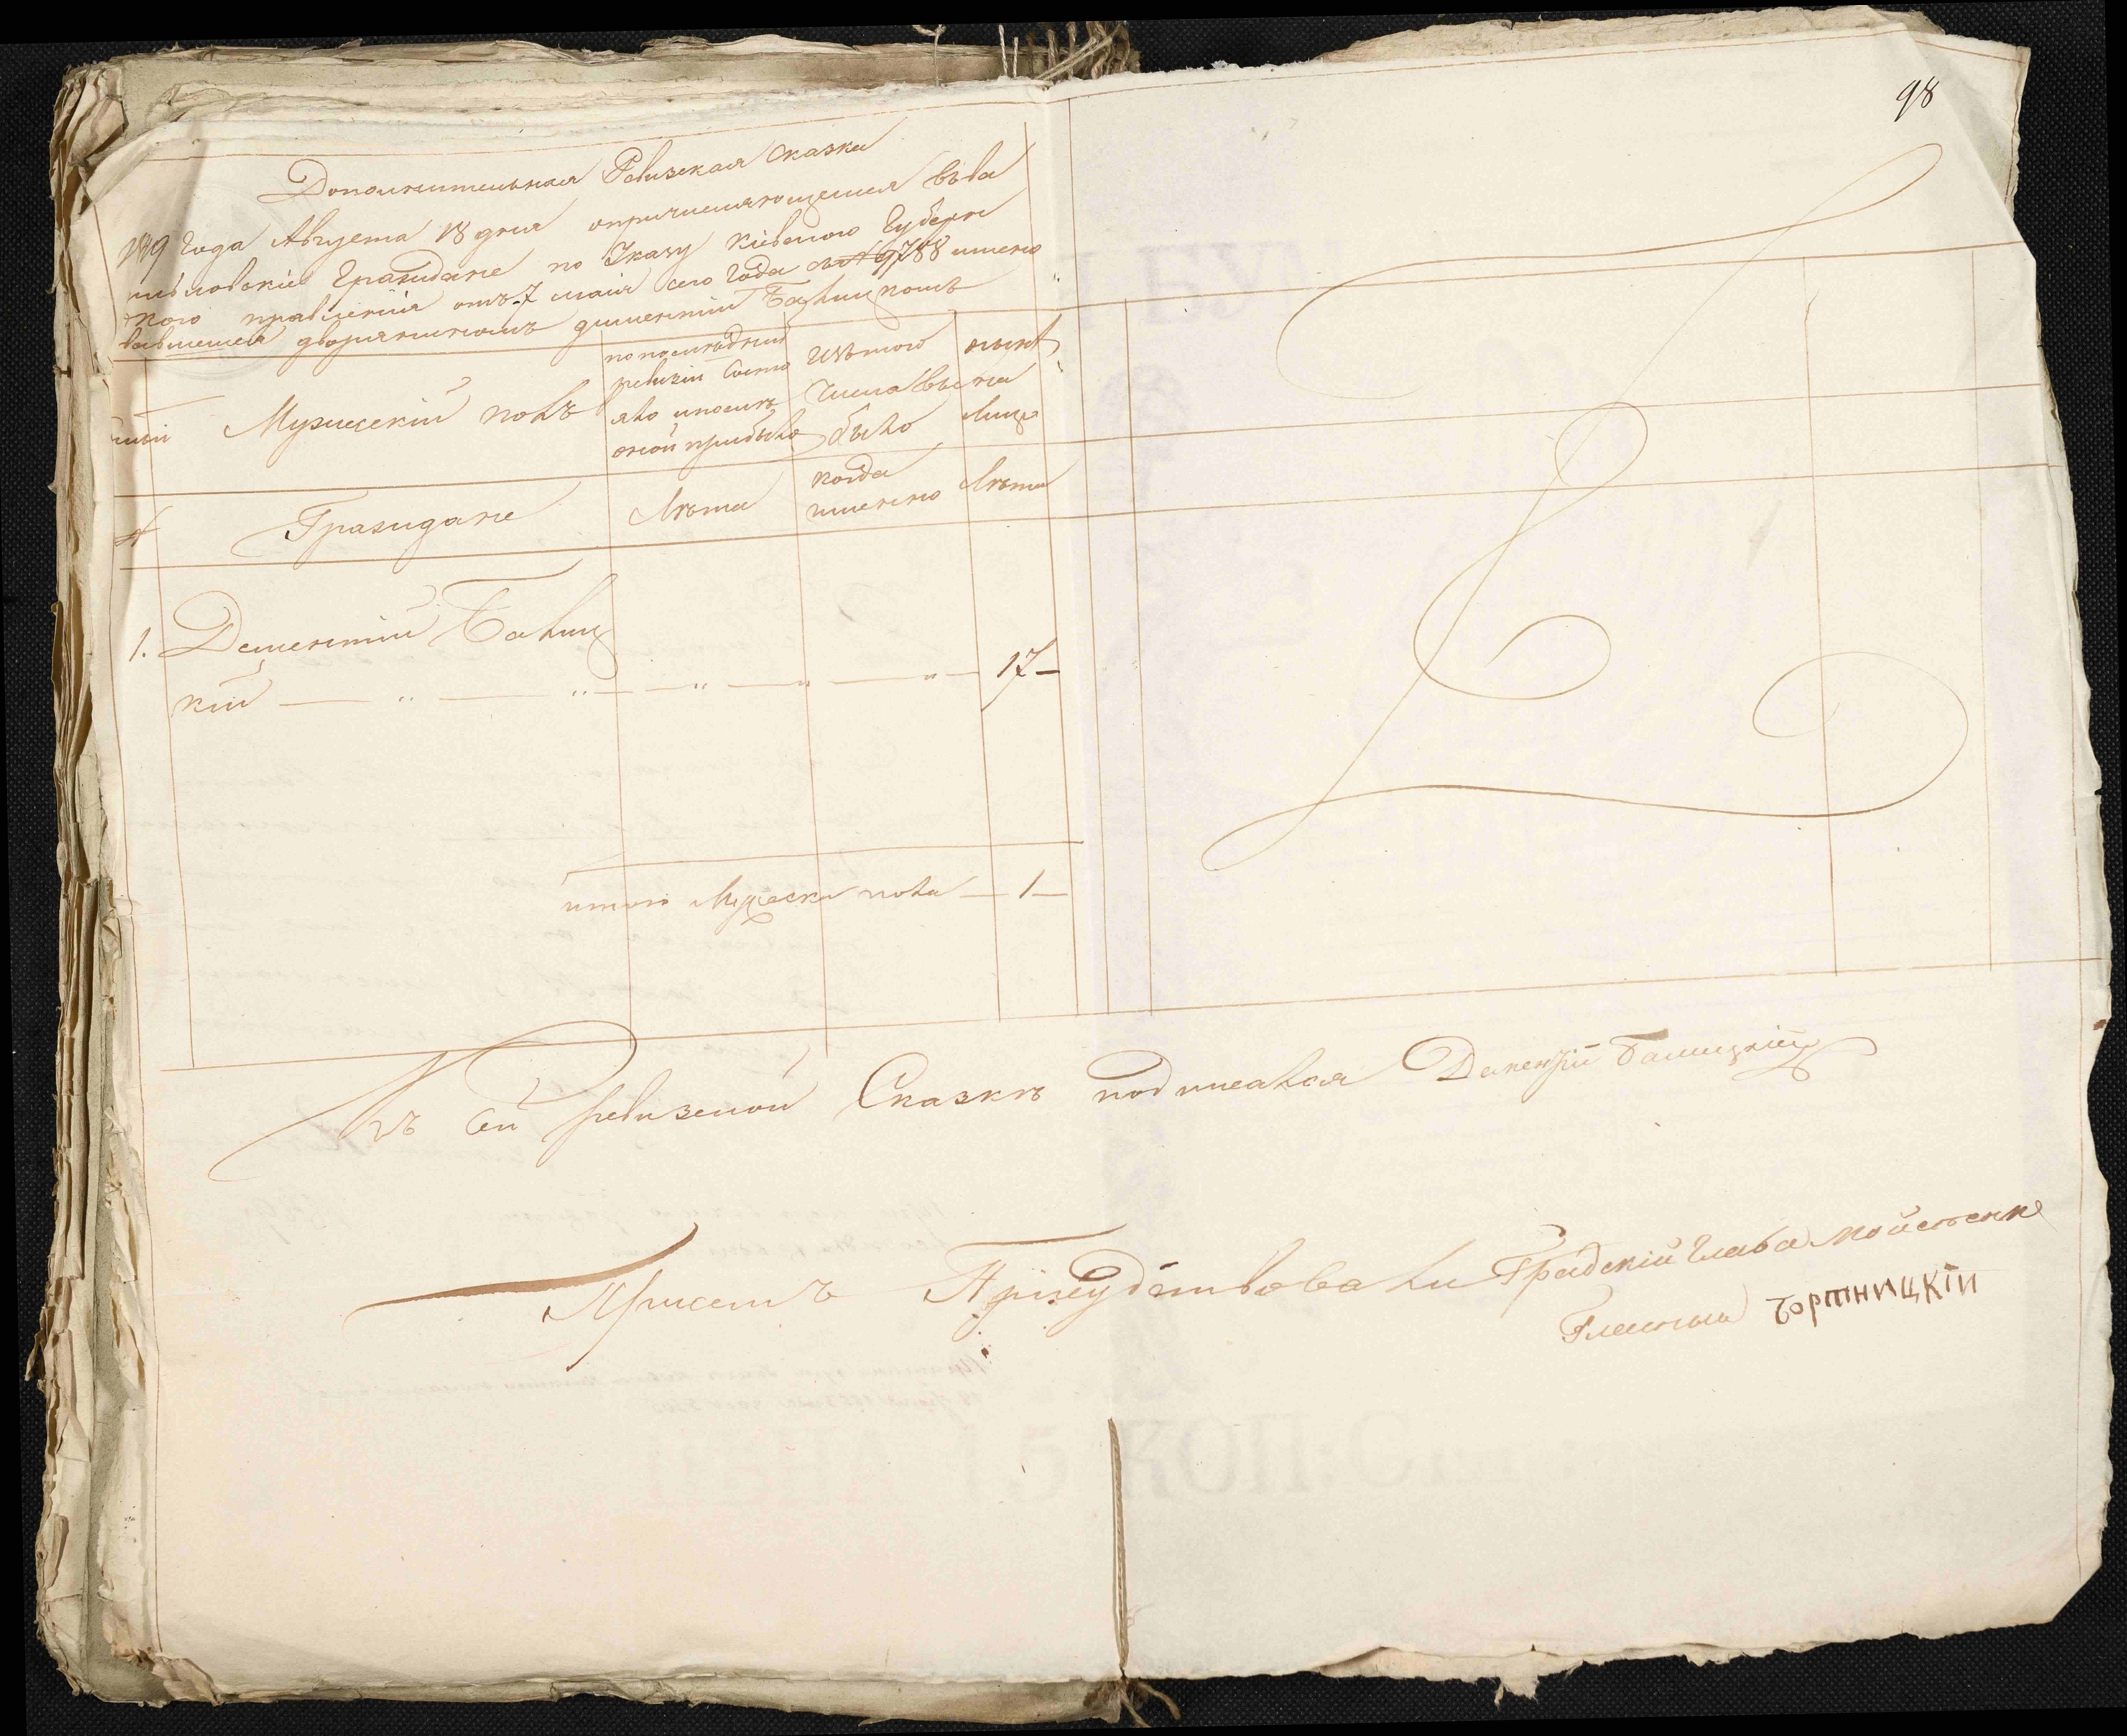 98
Дополнительная Ревизская Сказка
Года Августа 18 дня опричисляющемся въва
Граждане по Указу Кіевского Губерн
ского правленія отъ 7 маія сего Года 9788 имено
вавшемся дворяниномъ дементіи Балицкомъ
Мужескій полъ
по последней
ревизіи Состо
яло и после
оной прибыло
Изъ того
Числа вы
было
ныне
на
Лицо
№
Граждане
Лѣта
когда
именно
Лѣта
1. Дементій Балиц
кій 17
итого Мужеска пола 1
Къ сей ревизской Сказкѣ подписался Дементій Балицкій
Присемъ Присудствовали Градскій Глава Мойсеенко
Гласный Бортницкій